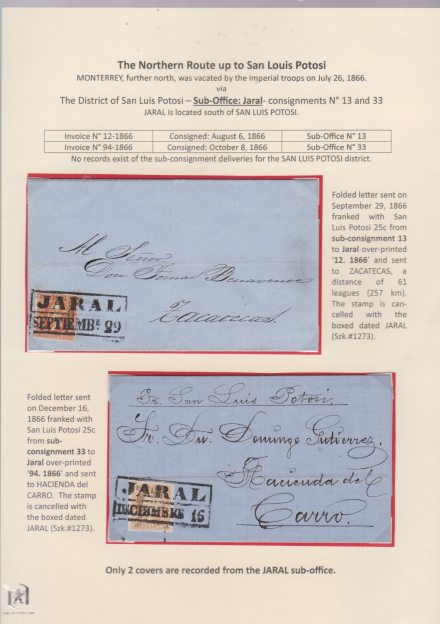 The Northern Route up to San Louis Potosi
MONTERREY, further north, was vacated by the Imperial troops on July 26, 1866.
via
The District of San Luis Potosi – Sub-Office: Jaral- consignments N° 13 and 33
JARAL is located south of SAN LUIS POTOSI.
Invoice N° 12-1866 Consigned: August 6, 1866 Sub-Office N° 13
Invoice N° 94-1866 Consigned: October 8, 1866 Sub-Office N° 33
No records exist of the sub-consignment deliveries for the SAN LUIS POTOSI district.
Folded letter sent on
September 29, 1866
franked with San
Luis Potosi 25c from
sub-consignment 13
to Jaral over-printed
'12. 1866' and sent
to ZACATECAS, a
distance of 61
leagues (257 km).
The stamp is can-
celled with the
boxed dated JARAL
(Szk.#1273).
Al Señor
Don Tomas
Zacatecas.
JARAL
SEPTIEMBE 29
Folded letter sent
on December 16,
1866 franked with
San Luis Potosi 25c
from sub-
consignment 33 to
Jaral over-printed
'94. 1866' and sent
to HACIENDA del
CARRO. The stamp
is cancelled with
the boxed dated
JARAL (Szk.#1273).
Pr. San Luis Potosi.
Sr. Dn. Domingo Gutierrez.
Hacienda del
Carro.
JARAL
DICIEMBRE 16
Only 2 covers are recorded from the JARAL sub-office.